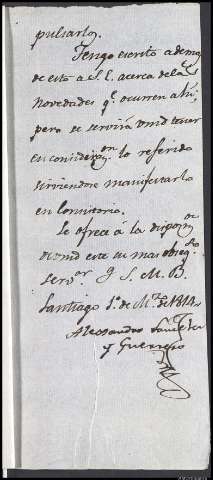 pulsarlos.
Tengo escrito ademas
de esto a S.E. acerca de las
Novedades q.e ocurren ahi,
pero se servirá vmd tener
en consideraz.on lo referido
sirviendose manifestarlo
en
Se ofrece á la dispon.
de vmd este su mas obseq.
Serv.or Q. S. M. B.
Santiago 1.o de M.zo de 1814.
Alessandro
y Guerrero